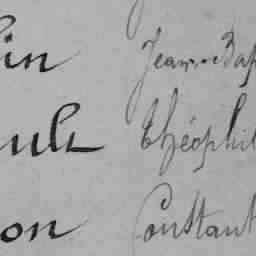 in Jean-Bap
ult Théophil
on Constant